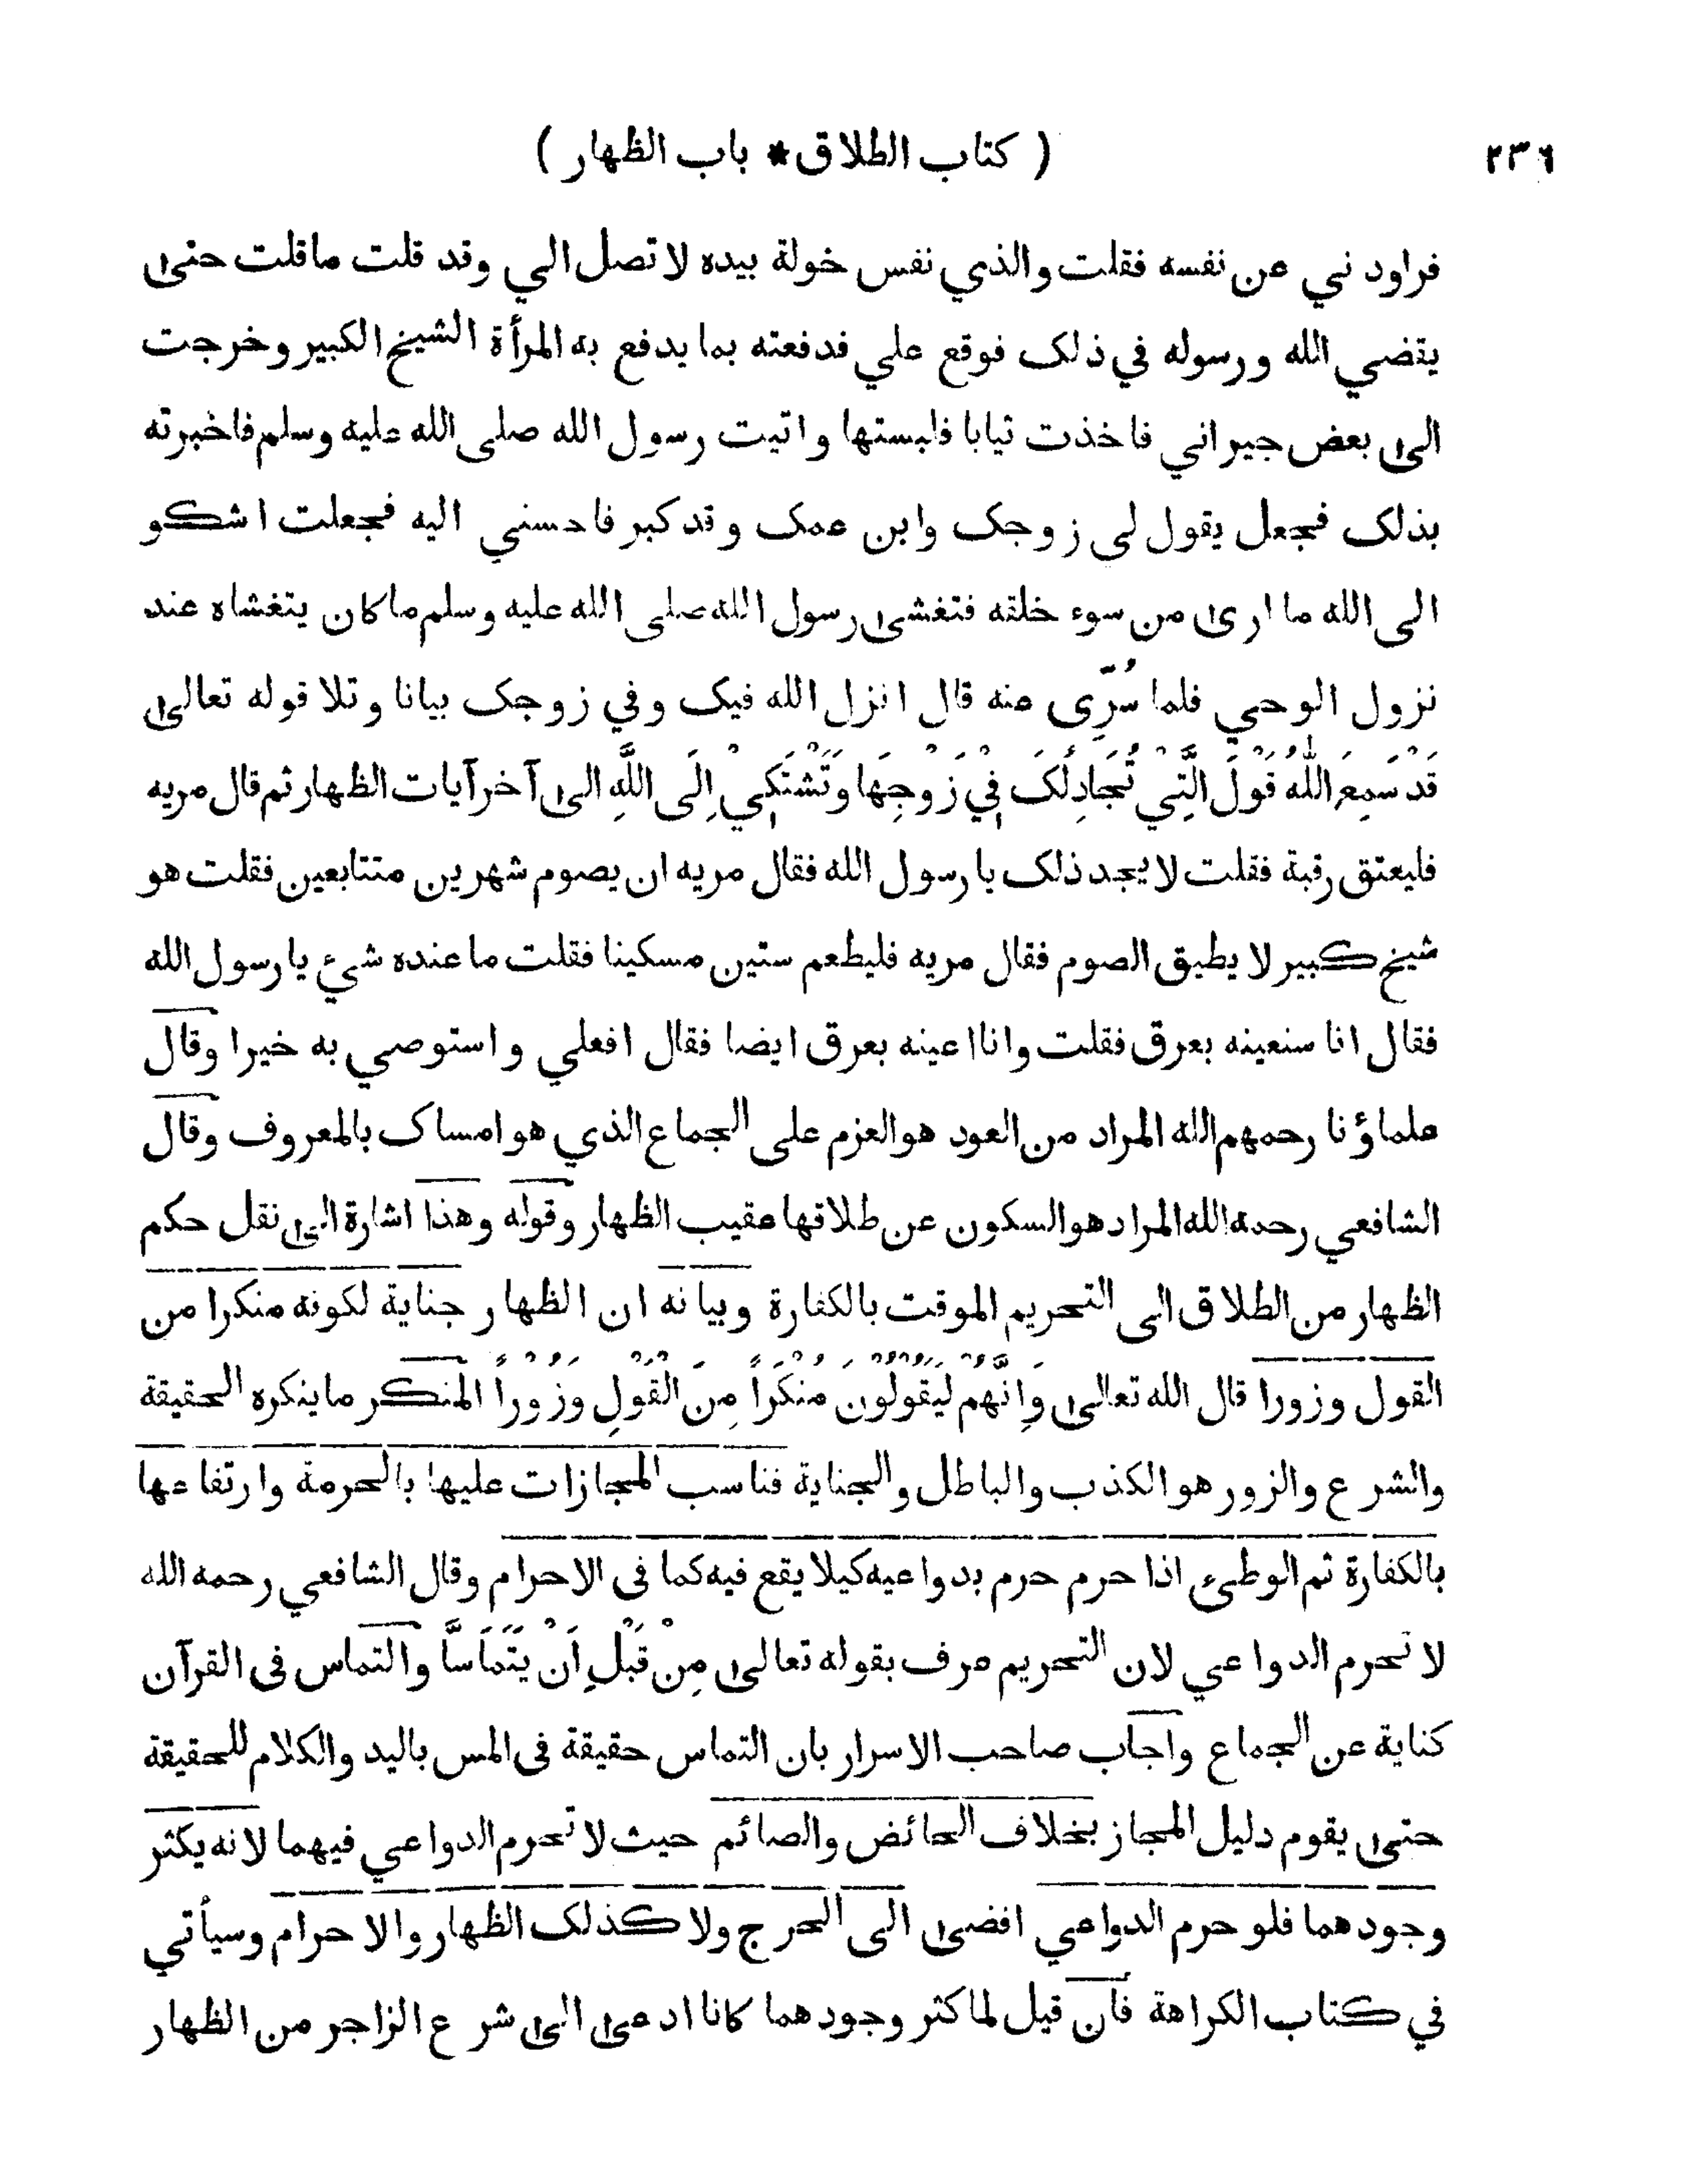 ٢٣٦ ( كتاب الطلاق * باب الظهار )
فراودني عن نفسه فقلت والذي نفس خولة بيده لا تصل الي وقد قلت ما قلت حتى
يقضي الله ورسوله في ذلك فوقع علي فدفعته بما يدفع به المرأة الشيخ الكبير وخرجت
الى بعض جيراني فاخذت ثيابا فلبستها واتيت رسول الله صلى الله عليه وسلم فاخبرته
بذلك فجعل يقول لى زوجك وابن عمك وقد كبر فاحسني اليه فجعلت اشكو
الى الله ما ارى من سوء خلقه فتغشى رسول الله صلى الله عليه وسلم ما كان يتغشاه عند
نزول الوحي فلما سُرِّى عنه قال انزل الله فيك وفي زوجك بيانا وتلا قوله تعالى
قَدْ سَمِعَ اللّٰهُ قَوْلَ الَّتِيْ تُجَادِلُكَ فِيْ زَوْجِهَا وَتَشْتَكِيْ اِلَى اللَّهِ الى آخر آيات الظهار ثم قال مريه
فليعتق رقبة فقلت لا يجد ذلك يا رسول الله فقال مريه ان يصوم شهرين متتابعين فقلت هو
شيخ كبير لا يطيق الصوم فقال مريه فليطعم ستين مسكينا فقلت ما عنده شيء يا رسول الله
فقال انا سنعينه بعرق فقلت وانا اعينه بعرق ايضا فقال افعلي واستوصي به خيرا وقال
علماؤنا رحمهم الله المراد من العود هو العزم على الجماع الذي هو امساك بالمعروف وقال
الشافعي رحمه الله المراد هو السكون عن طلاقها عقيب الظهار وقوله وهذا اشارة الى نقل حكم
الظهار من الطلاق الى التحريم الموقت بالكفارة وبيانه ان الظهار جناية لكونه منكرا من
القول وزورا قال الله تعالى وَاِنَّهُمْ لَيَقُوْلُوْنَ مُنْكَرًا مِنَ الْقَوْلِ وَزُوْرًا المنكر ما ينكره الحقيقة
والشرع والزور هو الكذب والباطل والجناية فناسب المجازات عليها بالحرمة وارتفاعها
بالكفارة ثم الوطىء اذا حرم حرم بدواعيه كيلا يقع فيه كما فى الاحرام وقال الشافعي رحمه الله
لا تحرم الدواعي لان التحريم عرف بقوله تعالى مِنْ قَبْلِ اَنْ يَتَمَاسَّا والتماس فى القرآن
كناية عن الجماع واجاب صاحب الاسرار بان التماس حقيقة فى المس باليد والكلام للحقيقة
حتى يقوم دليل المجاز بخلاف الحائض والصائم حيث لا تحرم الدواعي فيهما لانه يكثر
وجودهما فلو حرم الدواعي افضى الى الحرج ولا كذلك الظهار والاحرام وسيأتي
في كتاب الكراهة فان قيل لما كثر وجودهما كانا ادعى الى شرع الزاجر من الظهار